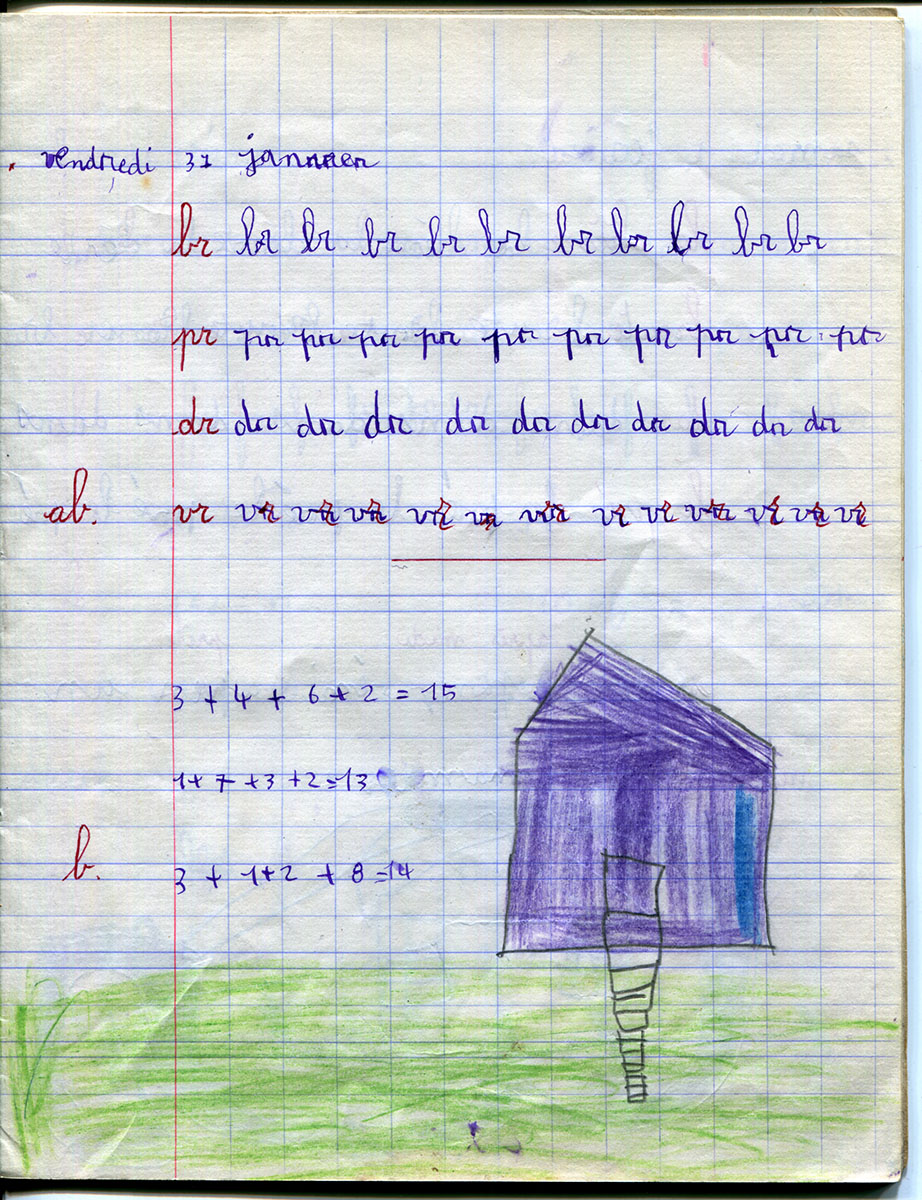 vendredi 31 janvier
br br br br br br br br br br br
pr pr pr pr pr pr pr pr pr pr pr
dr dr dr dr dr dr dr dr dr dr dr
ab. vr vr vr vr vr vr vr vr vr vr vr vr vr
3 + 4 + 6 + 2 = 15
1 + 7 + 3 + 2 = 13
b. 3 + 1 + 2 + 8 = 14